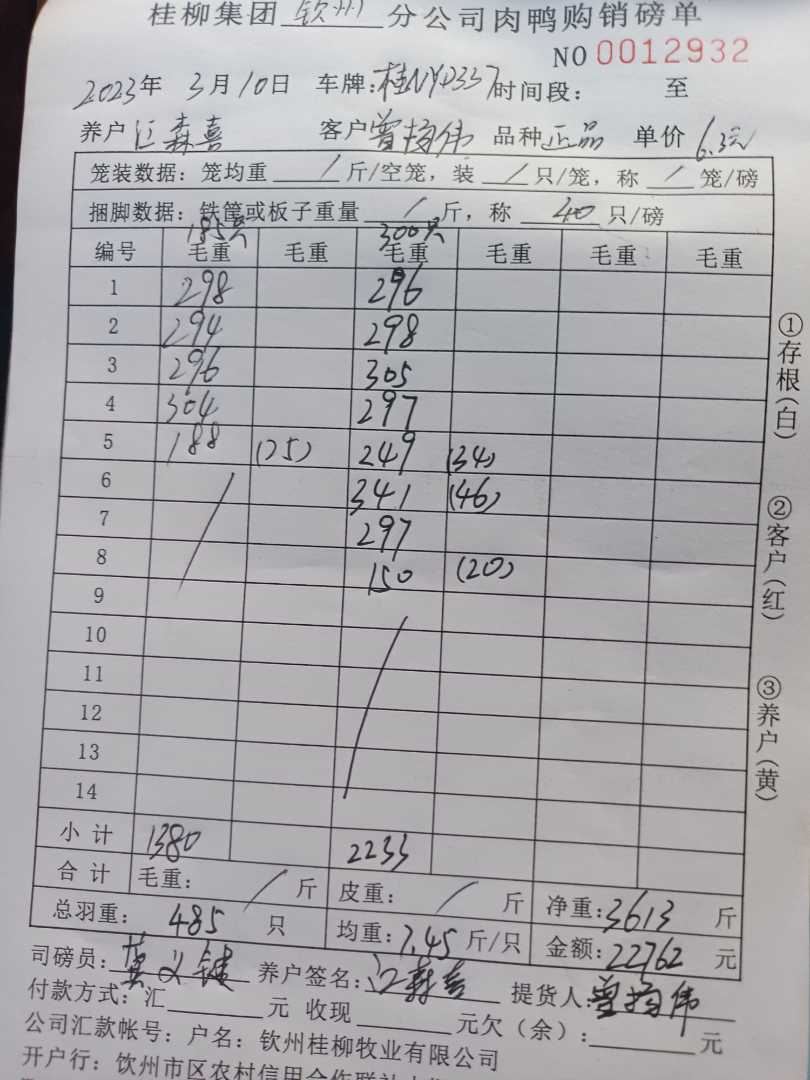 桂柳集团 钦州 分公司肉鸭购销磅单
NO 0012932
2023年 3月10日 车牌:桂NY4337 时间段: 至
养户 江森喜 客户 曾扬伟 品种 正品 单价 6.3元
笼装数据: 笼均重 / 斤/空笼, 装 / 只/笼, 称 / 笼/磅
捆脚数据: 铁筐或板子重量 / 斤, 称 40 只/磅
185只 300只
编号 毛重 毛重 毛重 毛重 毛重 毛重
1 298 296
2 294 298
3 296 305
4 304 297
5 188 (25) 249 (34)
6 341 (46)
7 297
8 150 (20)
9
10
11
12
13
14
小计 1380 2233
合计 毛重: / 斤 皮重: / 斤 净重:3613 斤
总羽重: 485 只 均重:7.45 斤/只 金额:22762 元
司磅员: 义键 养户签名: 江森喜 提货人:曾扬伟
付款方式: 汇 元 收现 元欠(余): 元
公司汇款帐号: 户名: 钦州桂柳牧业有限公司
开户行: 钦州市区农村信用合作联社
①存根(白)
②客户(红)
③养户(黄)